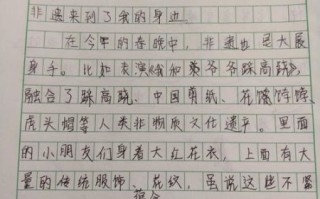 非遗来到了我的身边
在今年的春晚中，非遗也是大展
身手。比如表演《我和爷爷踩高跷》，
融合了踩高跷、中国剪纸、花馍饽饽、
虎头帽等人类非物质文化遗产。里面
的小朋友们身着大红花衣，上面有大
量的传统服饰、花纹，虽说这些不需